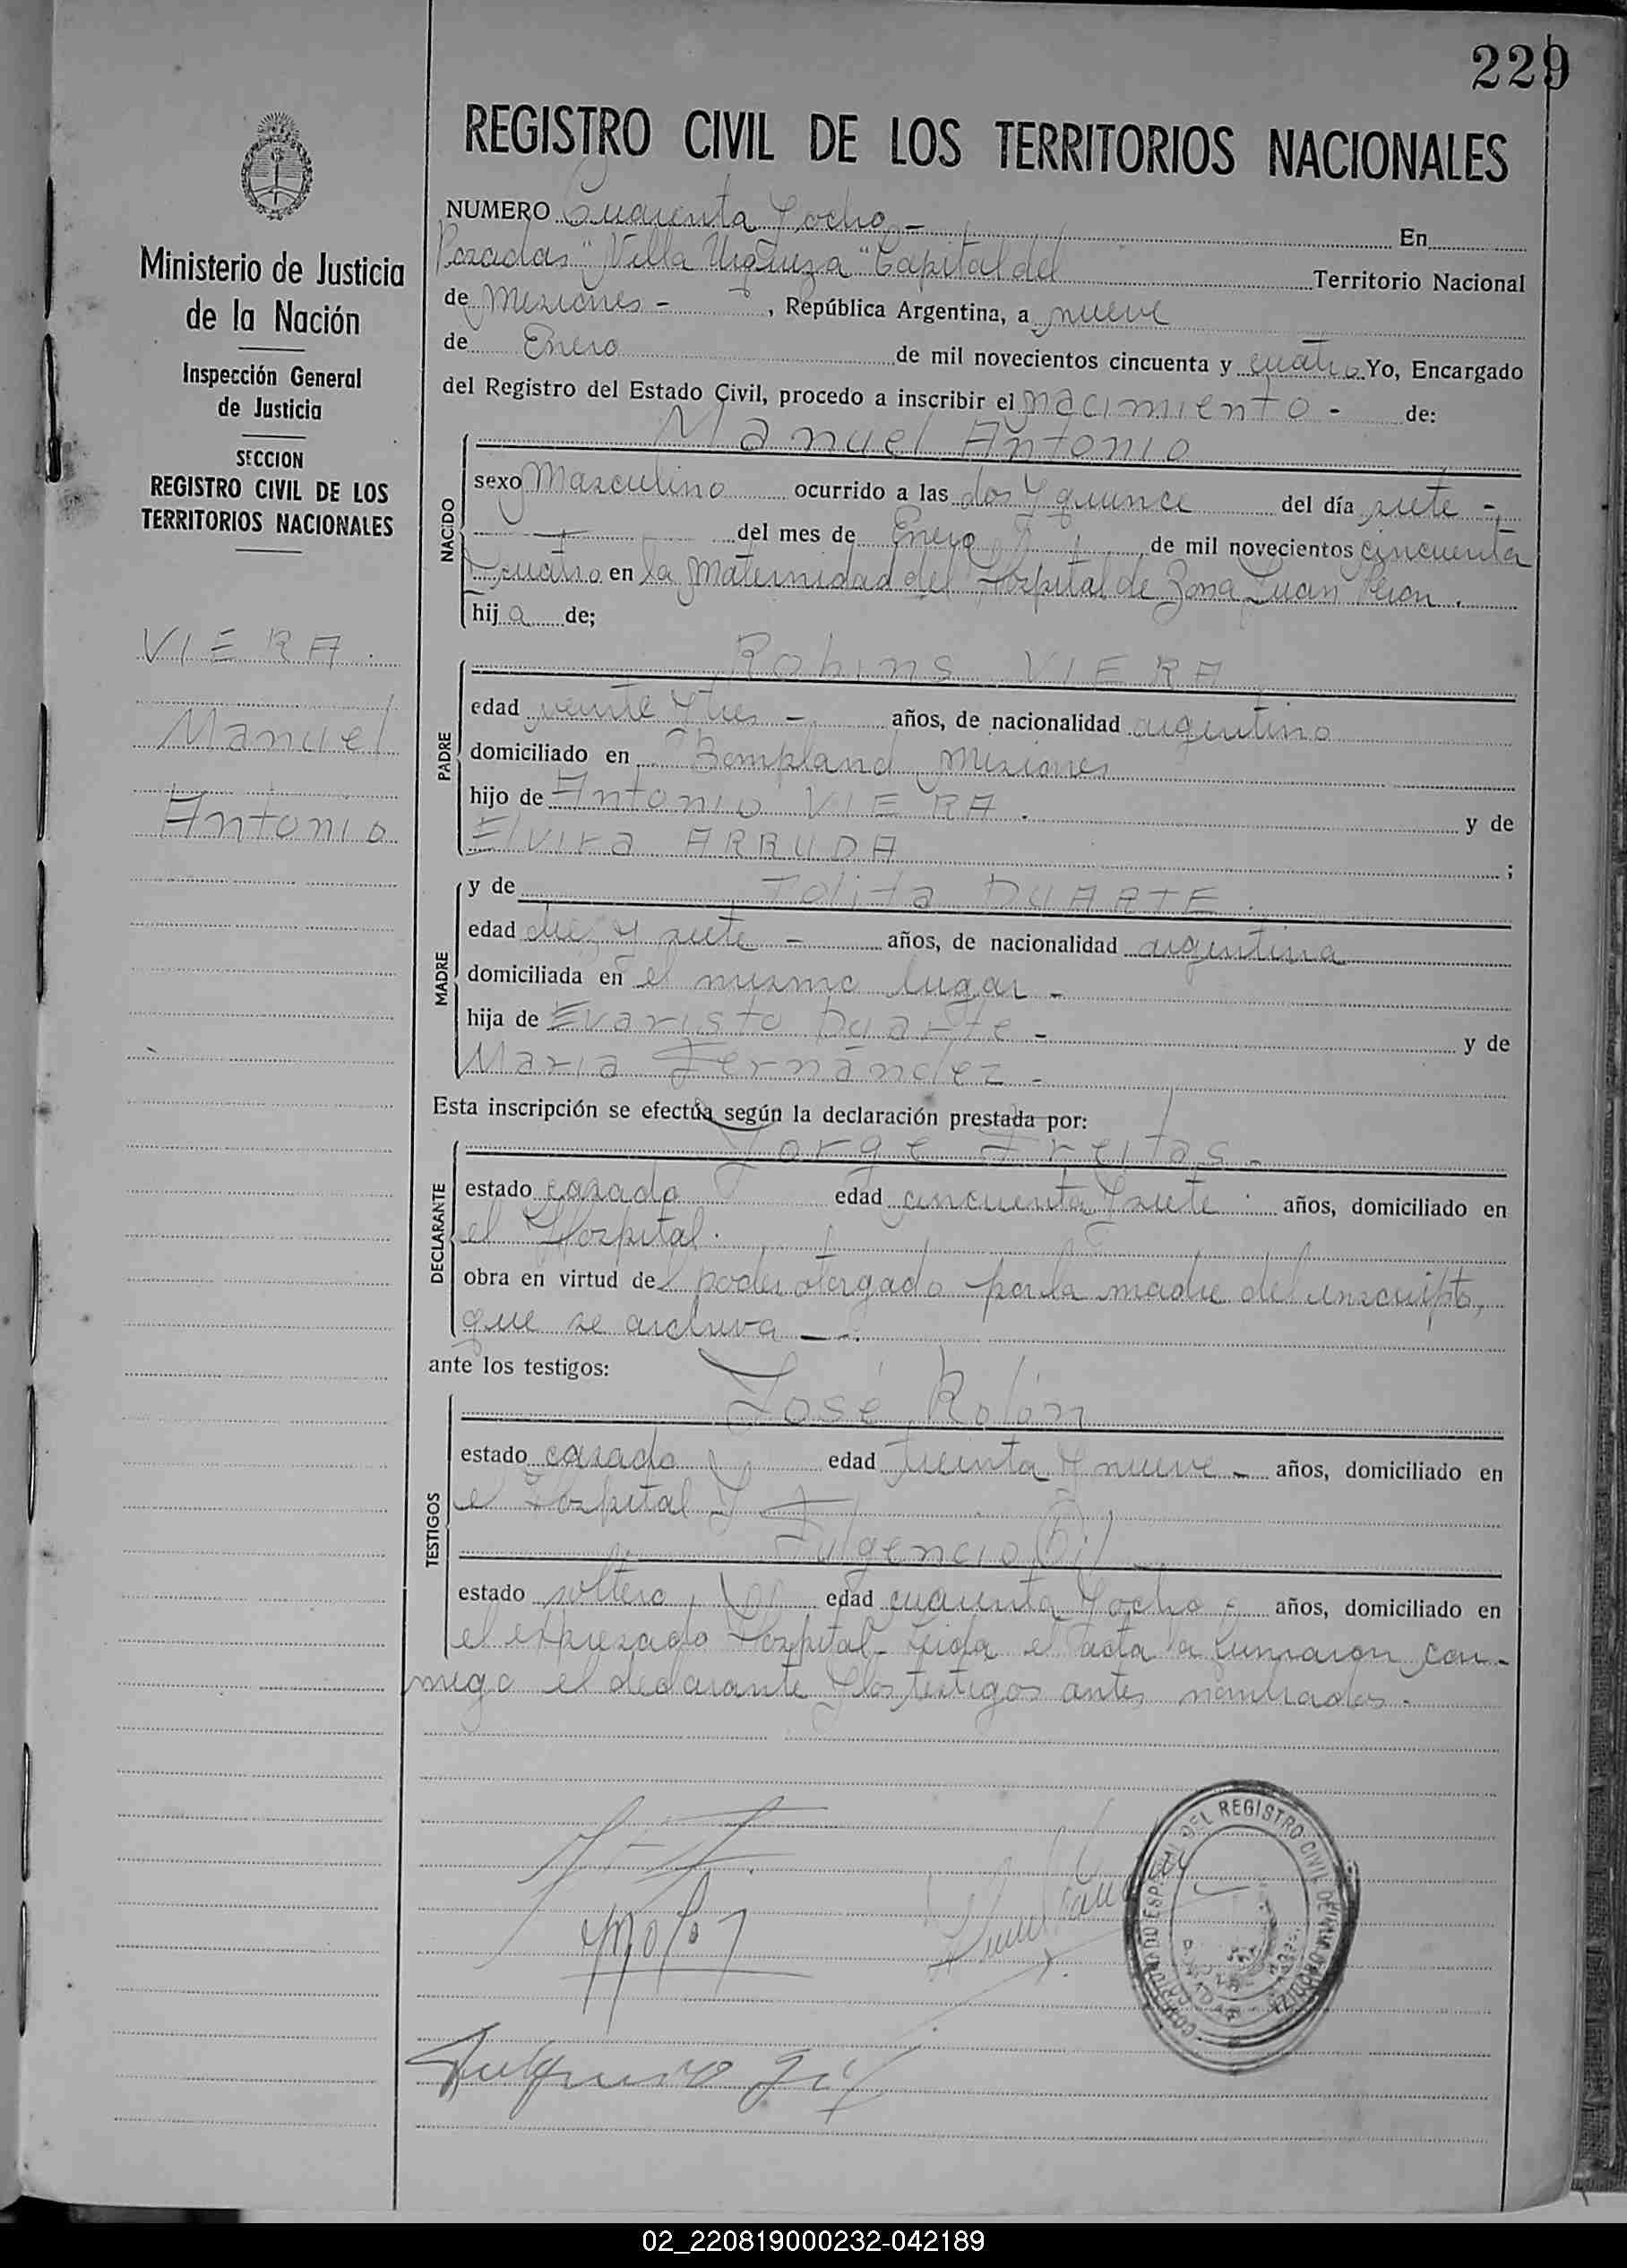 229
REGISTRO CIVIL DE LOS TERRITORIOS NACIONALES
Ministerio de Justicia
de la Nación
Inspección General
de Justicia
SECCION
REGISTRO CIVIL DE LOS
TERRITORIOS NACIONALES
VIERA.
Manuel
Antonio
NUMERO Cuarenta y ocho - En
Posadas "Villa Urquiza" Capital del Territorio Nacional
de Misiones - , República Argentina, a nueve
de Enero de mil novecientos cincuenta y cuatro Yo, Encargado
del Registro del Estado Civil, procedo a inscribir el nacimiento - de:
Manuel Antonio
NACIDO
sexo Masculino ocurrido a las dos y quince del día siete -
del mes de Enero de mil novecientos cincuenta
y cuatro en la Maternidad del Hospital de Zona Juan Perón.
hijo de;
PADRE
Robins VIERA
edad veinte y tres - años, de nacionalidad argentino
domiciliado en Bompland Misiones
hijo de Antonio VIERA. y de
Elvira ARRUDA ;
MADRE
y de Jolita DUARTE.
edad diez y siete - años, de nacionalidad argentina
domiciliada en el mismo lugar -
hija de Evaristo Duarte - y de
María Fernández -
Esta inscripción se efectúa según la declaración prestada por:
DECLARANTE
Jorge Freitas -
estado casado edad cincuenta y siete años, domiciliado en
el Hospital.
obra en virtud del poder otorgado por la madre del inscripto,
que se archiva -
ante los testigos:
TESTIGOS
José Rolón
estado casado edad treinta y nueve - años, domiciliado en
el Hospital y
Fulgencio Gil -
estado soltero, edad cuarenta y ocho - años, domiciliado en
el expresado Hospital - Leida el acta la firmaron con-
migo el declarante y los testigos antes nombrados.
Fulgencio Gil
DEL REGISTRO CIVIL
02_220819000232-042189